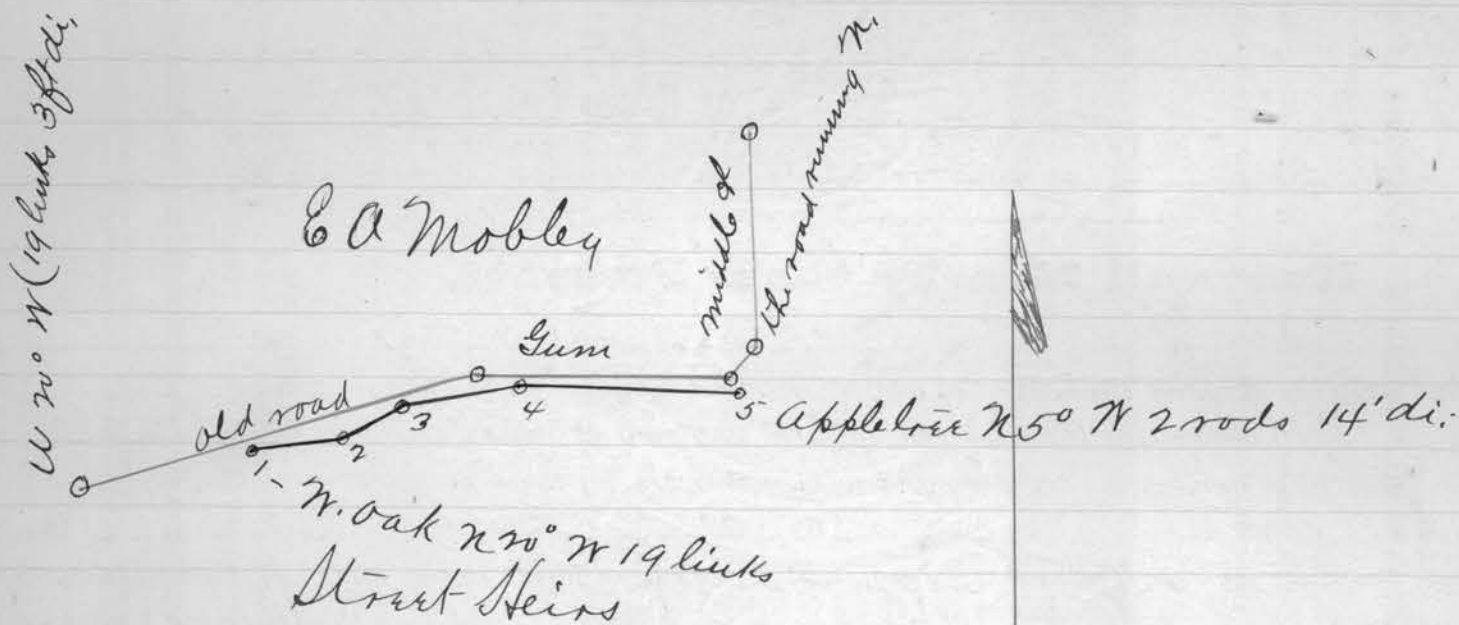 N 20° W (19 links 3ft di,
E A Mobley
middle of
the road running N.
Gum
old road
1 2 3 4 5
Appletree N 5° W 2 rods 14' di.
W. oak N 20° W 19 links
Street Heirs